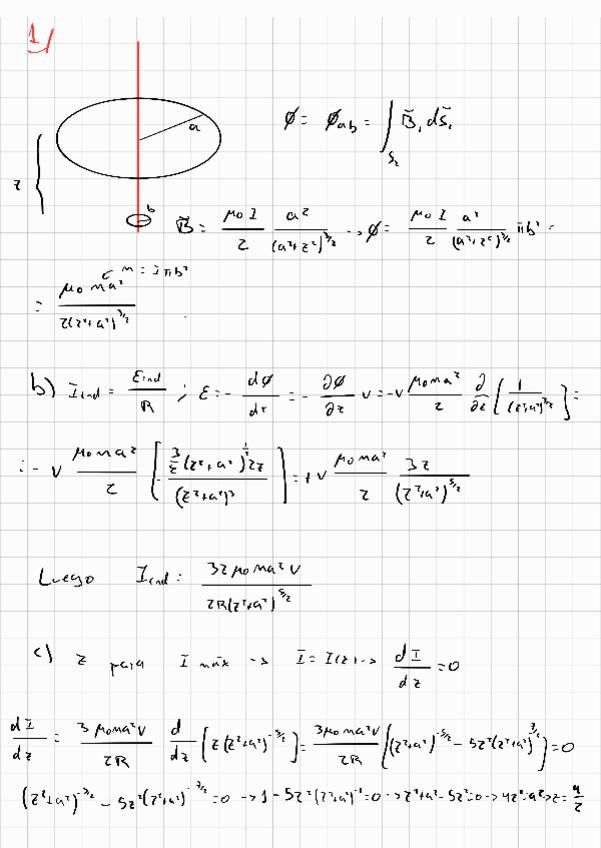 1)
a
z {
b
ϕ = ϕab = ∫S₂ B̄₁ ds̄₁
B̄ = μ₀I/2 a²/(a²+z²)^(3/2) → ϕ = μ₀I/2 a²/(a²+z²)^(3/2) πb² =
m = Iπb²
= μ₀ma²/2(z²+a²)^(3/2)
b) Iind = εind/R ; ε = - dϕ/dt = - ∂ϕ/∂z v = -v μ₀ma²/2 ∂/∂z [1/(z²+a²)^(3/2)] =
= - v μ₀ma²/2 [- 3/2 (z²+a²)^(1/2) 2z/(z²+a²)³] = + v μ₀ma²/2 3z/(z²+a²)^(5/2)
Luego Iind = 3zμ₀ma²v/2R(z²+a²)^(5/2)
c) z para I máx → I = I(z) → dI/dz = 0
dI/dz = 3μ₀ma²v/2R d/dz [z(z²+a²)^(-5/2)] = 3μ₀ma²v/2R [(z²+a²)^(-5/2) - 5z²(z²+a²)^(-7/2)] = 0
(z²+a²)^(-5/2) - 5z²(z²+a²)^(-7/2) = 0 → 1 - 5z²(z²+a²)^(-1) = 0 → z²+a²-5z² = 0 → 4z² = a² → z = a/2